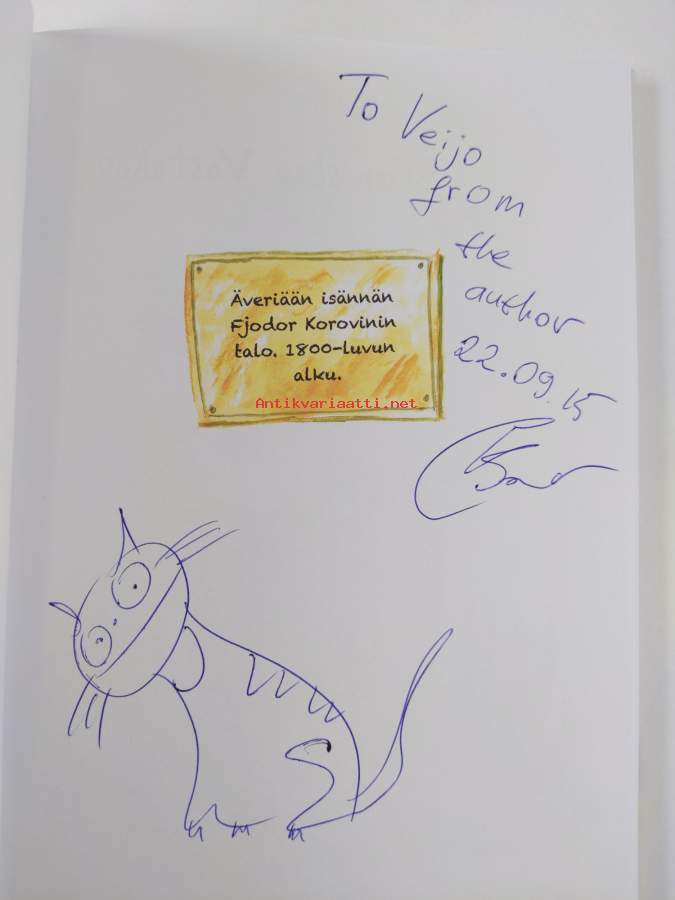 To Veijo
from
the
author
22.09.15
Äveriään isännän
Fjodor Korovinin
talo. 1800-luvun
alku.
Antikvariaatti.net